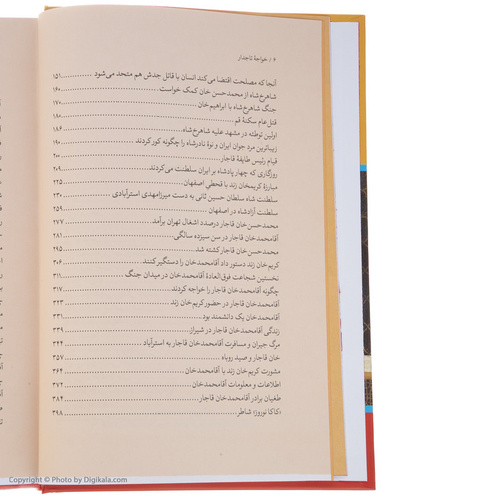 ۶ / خواجهٔ تاجدار
آنجا که مصلحت اقتضا می‌کند انسان با قاتل جدش هم متحد می‌شود ............ ۱۵۱
شاهرخ‌شاه از محمدحسن خان کمک خواست ............ ۱۶۰
جنگ شاهرخ‌شاه با ابراهیم‌خان ............ ۱۷۰
قتل‌عام سکنهٔ قم ............ ۱۸۰
اولین توطئه در مشهد علیه شاهرخ‌شاه ............ ۱۸۶
زیباترین مرد جوان ایران و نوهٔ نادرشاه را چگونه کور کردند ............ ۱۹۰
قیام رئیس طایفهٔ قاجار ............ ۲۰۰
روزگاری که چهار پادشاه بر ایران سلطنت می‌کردند ............ ۲۰۹
مبارزهٔ کریمخان زند با قحطی اصفهان ............ ۲۲۵
سلطنت شاه سلطان حسین ثانی به دست میرزامهدی استرآبادی ............ ۲۳۰
سلطنت آزادشاه در اصفهان ............ ۲۵۹
محمدحسن خان قاجار درصدد اشغال تهران برآمد ............ ۲۷۷
آقامحمدخان قاجار در سن سیزده سالگی ............ ۲۸۱
محمدحسن خان قاجار کشته شد ............ ۲۹۵
کریم خان زند دستور داد آقامحمدخان را دستگیر کنند ............ ۳۰۶
نخستین شجاعت فوق‌العادهٔ آقامحمدخان در میدان جنگ ............ ۳۱۱
چگونه آقامحمدخان قاجار را خواجه کردند ............ ۳۱۷
آقامحمدخان قاجار در حضور کریم خان زند ............ ۳۲۳
آقامحمدخان یک دانشمند بود ............ ۳۳۱
زندگی آقامحمدخان قاجار در شیراز ............ ۳۳۹
مرگ جیران و مسافرت آقامحمدخان قاجار به استرآباد ............ ۳۴۴
خان قاجار و صید روباه ............ ۳۵۷
مشورت کریم خان زند با آقامحمدخان ............ ۳۶۴
اطلاعات و معلومات آقامحمدخان ............ ۳۷۲
طغیان برادر آقامحمدخان قاجار ............ ۳۸۴
«کاکا نوروز» شاطر ............ ۳۹۸
Copyright © Photo by Digikala.com